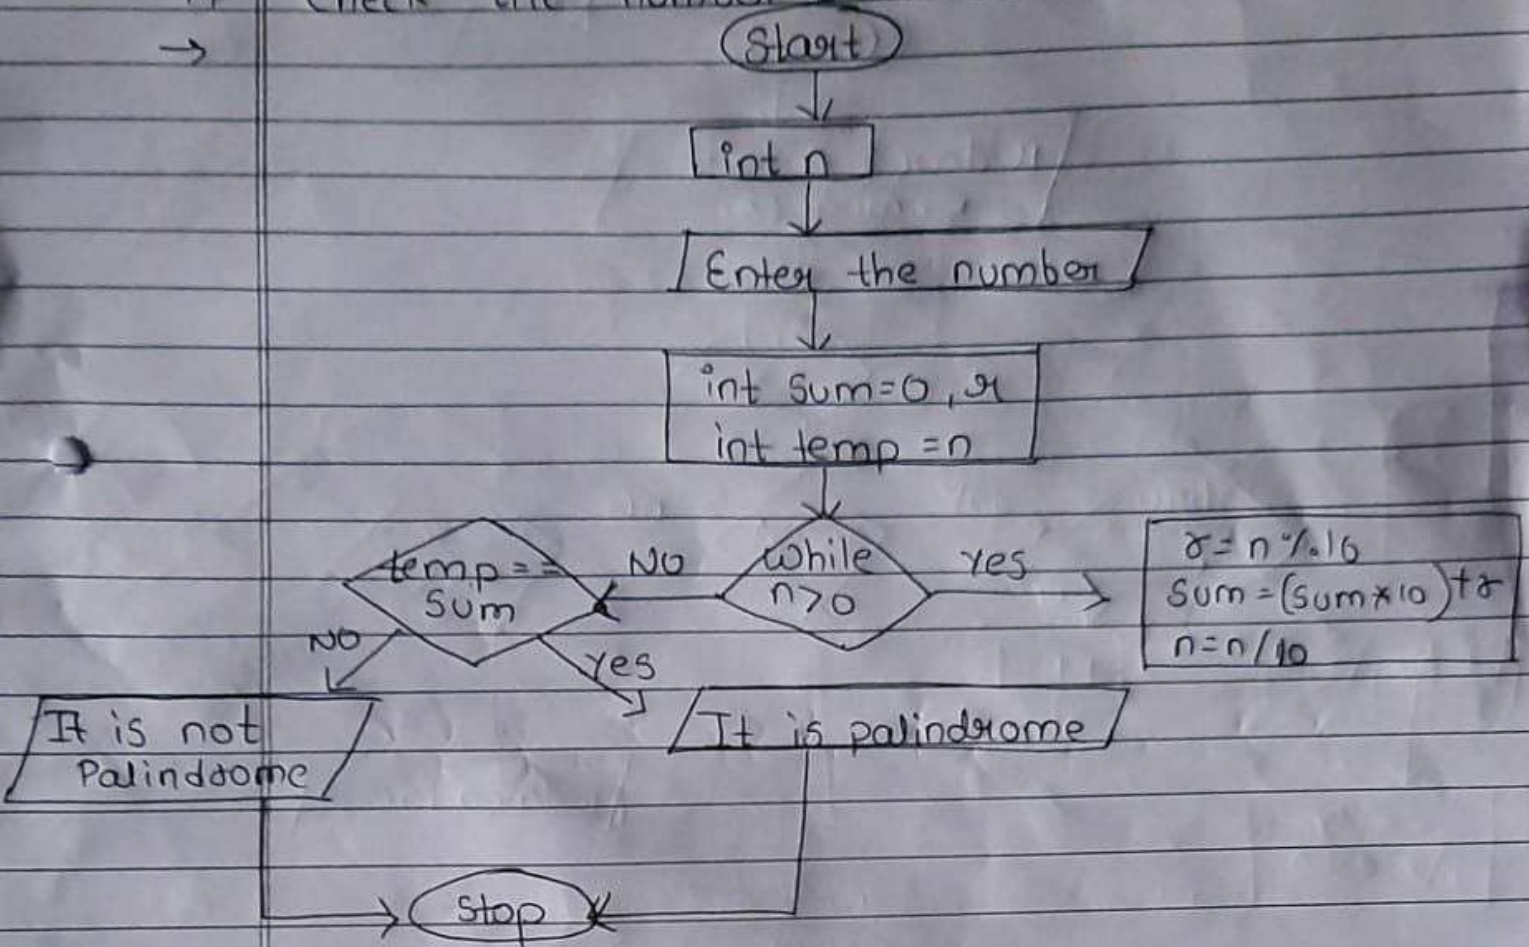 Check the number
→
Start
int n
Enter the number
int sum=0, r
int temp =n
while
n>0
Yes
r= n%10
sum=(sum*10)+r
n=n/10
NO
temp==
sum
NO
Yes
It is not
Palindrome
It is palindrome
Stop